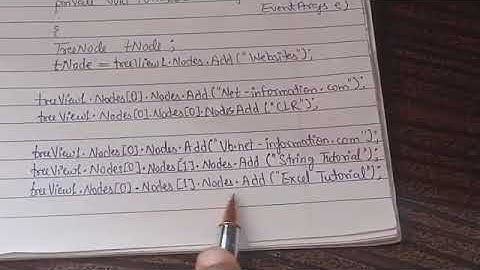 private void
EventArgs e)
{
TreeNode tNode ;
tNode = treeView1.Nodes.Add("Websites");
treeView1.Nodes[0].Nodes.Add("Net-information.com");
treeView1.Nodes[0].Nodes[0].Nodes.Add("CLR");
treeView1.Nodes[0].Nodes.Add("Vb.net-information.com");
treeView1.Nodes[0].Nodes[1].Nodes.Add ("String Tutorial");
treeView1.Nodes[0].Nodes[1].Nodes.Add ("Excel Tutorial");